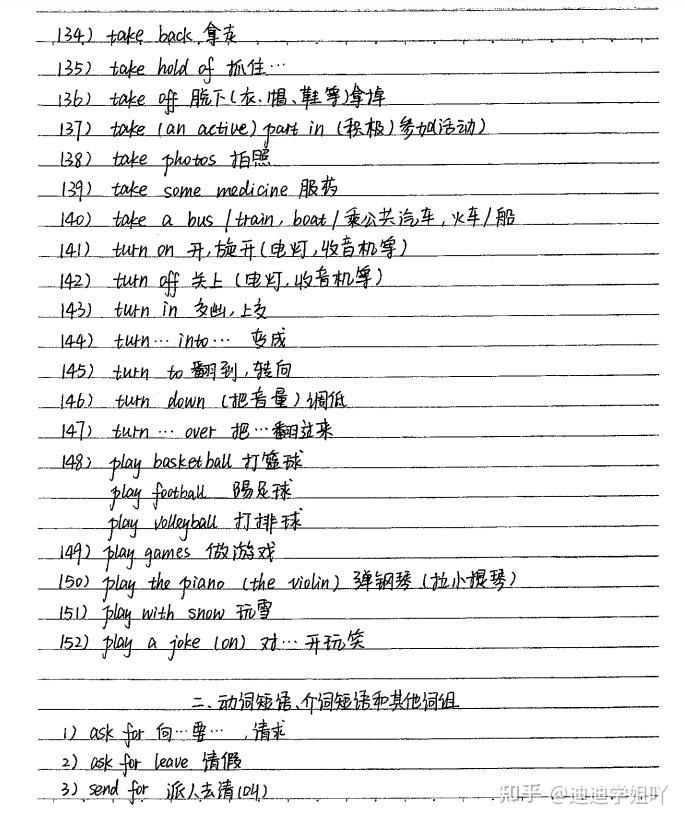 134) take back 拿走
135) take hold of 抓住…
136) take off 脱下(衣、帽、鞋等)拿掉
137) take (an active) part in (积极)参加(活动)
138) take photos 拍照
139) take some medicine 服药
140) take a bus/train, boat/乘公共汽车,火车/船
141) turn on 开,旋开(电灯,收音机等)
142) turn off 关上(电灯,收音机等)
143) turn in 交出,上交
144) turn…into… 变成
145) turn to 翻到,转向
146) turn down (把音量)调低
147) turn…over 把…翻过来
148) play basketball 打篮球
play football 踢足球
play volleyball 打排球
149) play games 做游戏
150) play the piano (the violin) 弹钢琴(拉小提琴)
151) play with snow 玩雪
152) play a joke (on) 对…开玩笑
二、动词短语、介词短语和其他词组
1) ask for 向…要…,请求
2) ask for leave 请假
3) send for 派人去请(叫)
知乎 @迪迪学姐吖